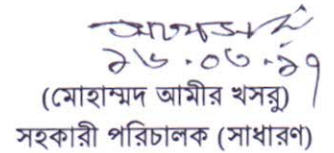 ১৬.০৩.১৭
(মোহাম্মদ আমীর খসরু)
সহকারী পরিচালক (সাধারণ)